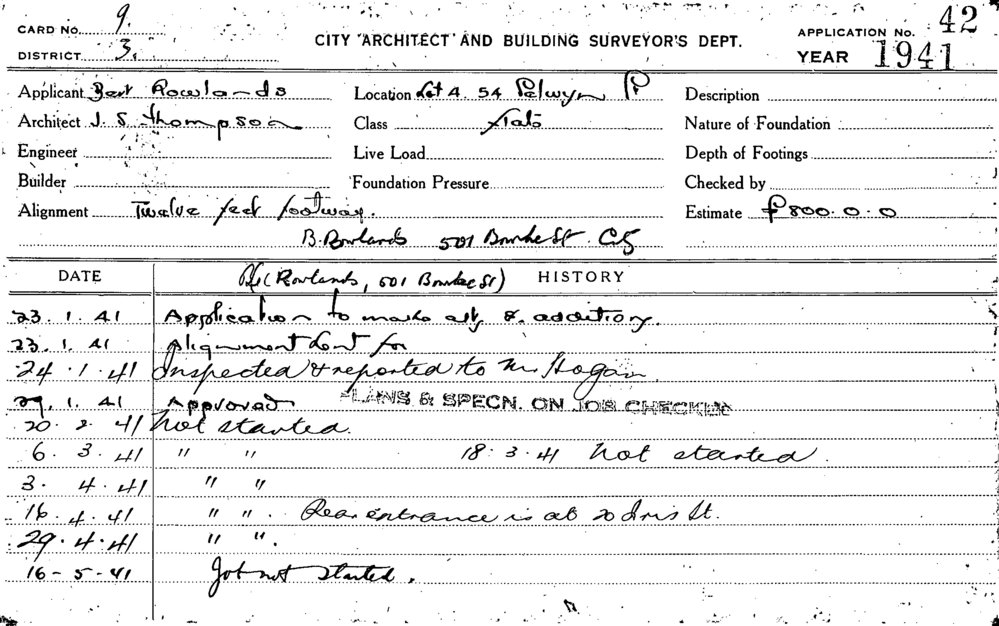 CARD No. 9.
DISTRICT 3.
CITY ARCHITECT AND BUILDING SURVEYOR'S DEPT.
APPLICATION No. 42
YEAR 1941
Applicant Bert Rowlands
Location Lot A. 54 Selwyn
Description
Architect J. S. Thompson
Class Flats
Nature of Foundation
Engineer
Live Load
Depth of Footings
Builder
Foundation Pressure
Checked by
Alignment Twelve feet footway.
Estimate £800.0.0
B. Rowlands 501 Bourke St. City
DATE
(Rowlands, 501 Bourke St)
HISTORY
23.1.41 Application to make alts & additions.
23.1.41 Alignment Sent for
24.1.41 Inspected & reported to Mr Hogan
29.1.41 Approved PLANS & SPECN. ON JOB CHECKED
20.2.41 Not started.
6.3.41 " " 18.3.41 Not started.
3.4.41 " "
16.4.41 " ". Rear entrance is at 20 Iris St.
29.4.41 " ".
16-5-41 Job not started.